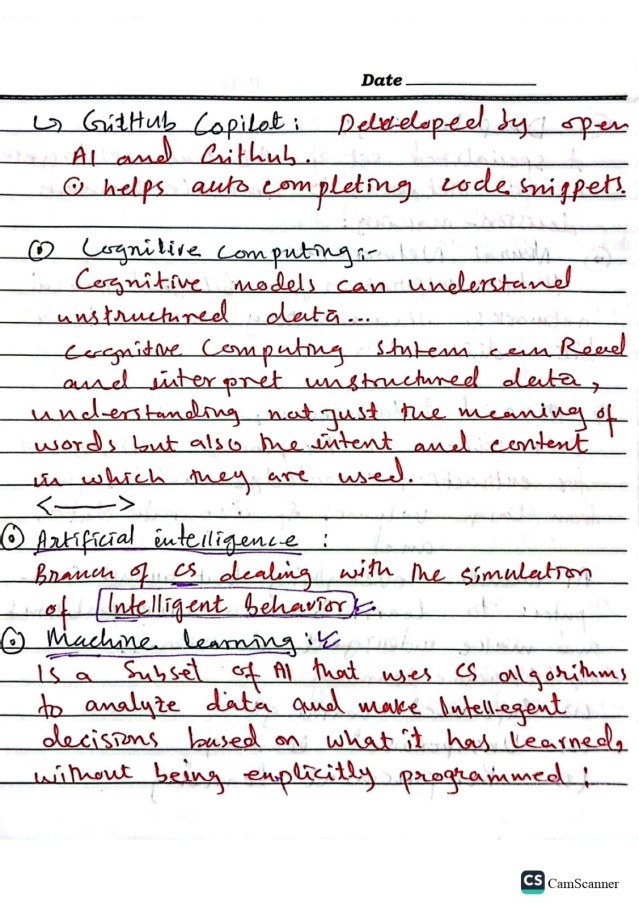 Date
↳ GitHub Copilot : Developed by open
AI and Github.
⊙ helps auto completing code snippets.
⊙ Cognitive computing :-
Cognitive models can understand
unstructured data...
Cognitive Computing system can Read
and interpret unstructured data,
understanding not just the meaning of
words but also the intent and content
in which they are used.
<——>
⊙ Artificial intelligence :
Branch of CS dealing with the simulation
of Intelligent Behavior
⊙ Machine learning :
Is a Subset of AI that uses CS algorithms
to analyze data and make Intellegent
decisions based on what it has learned,
without being explicitly programmed :
CS CamScanner